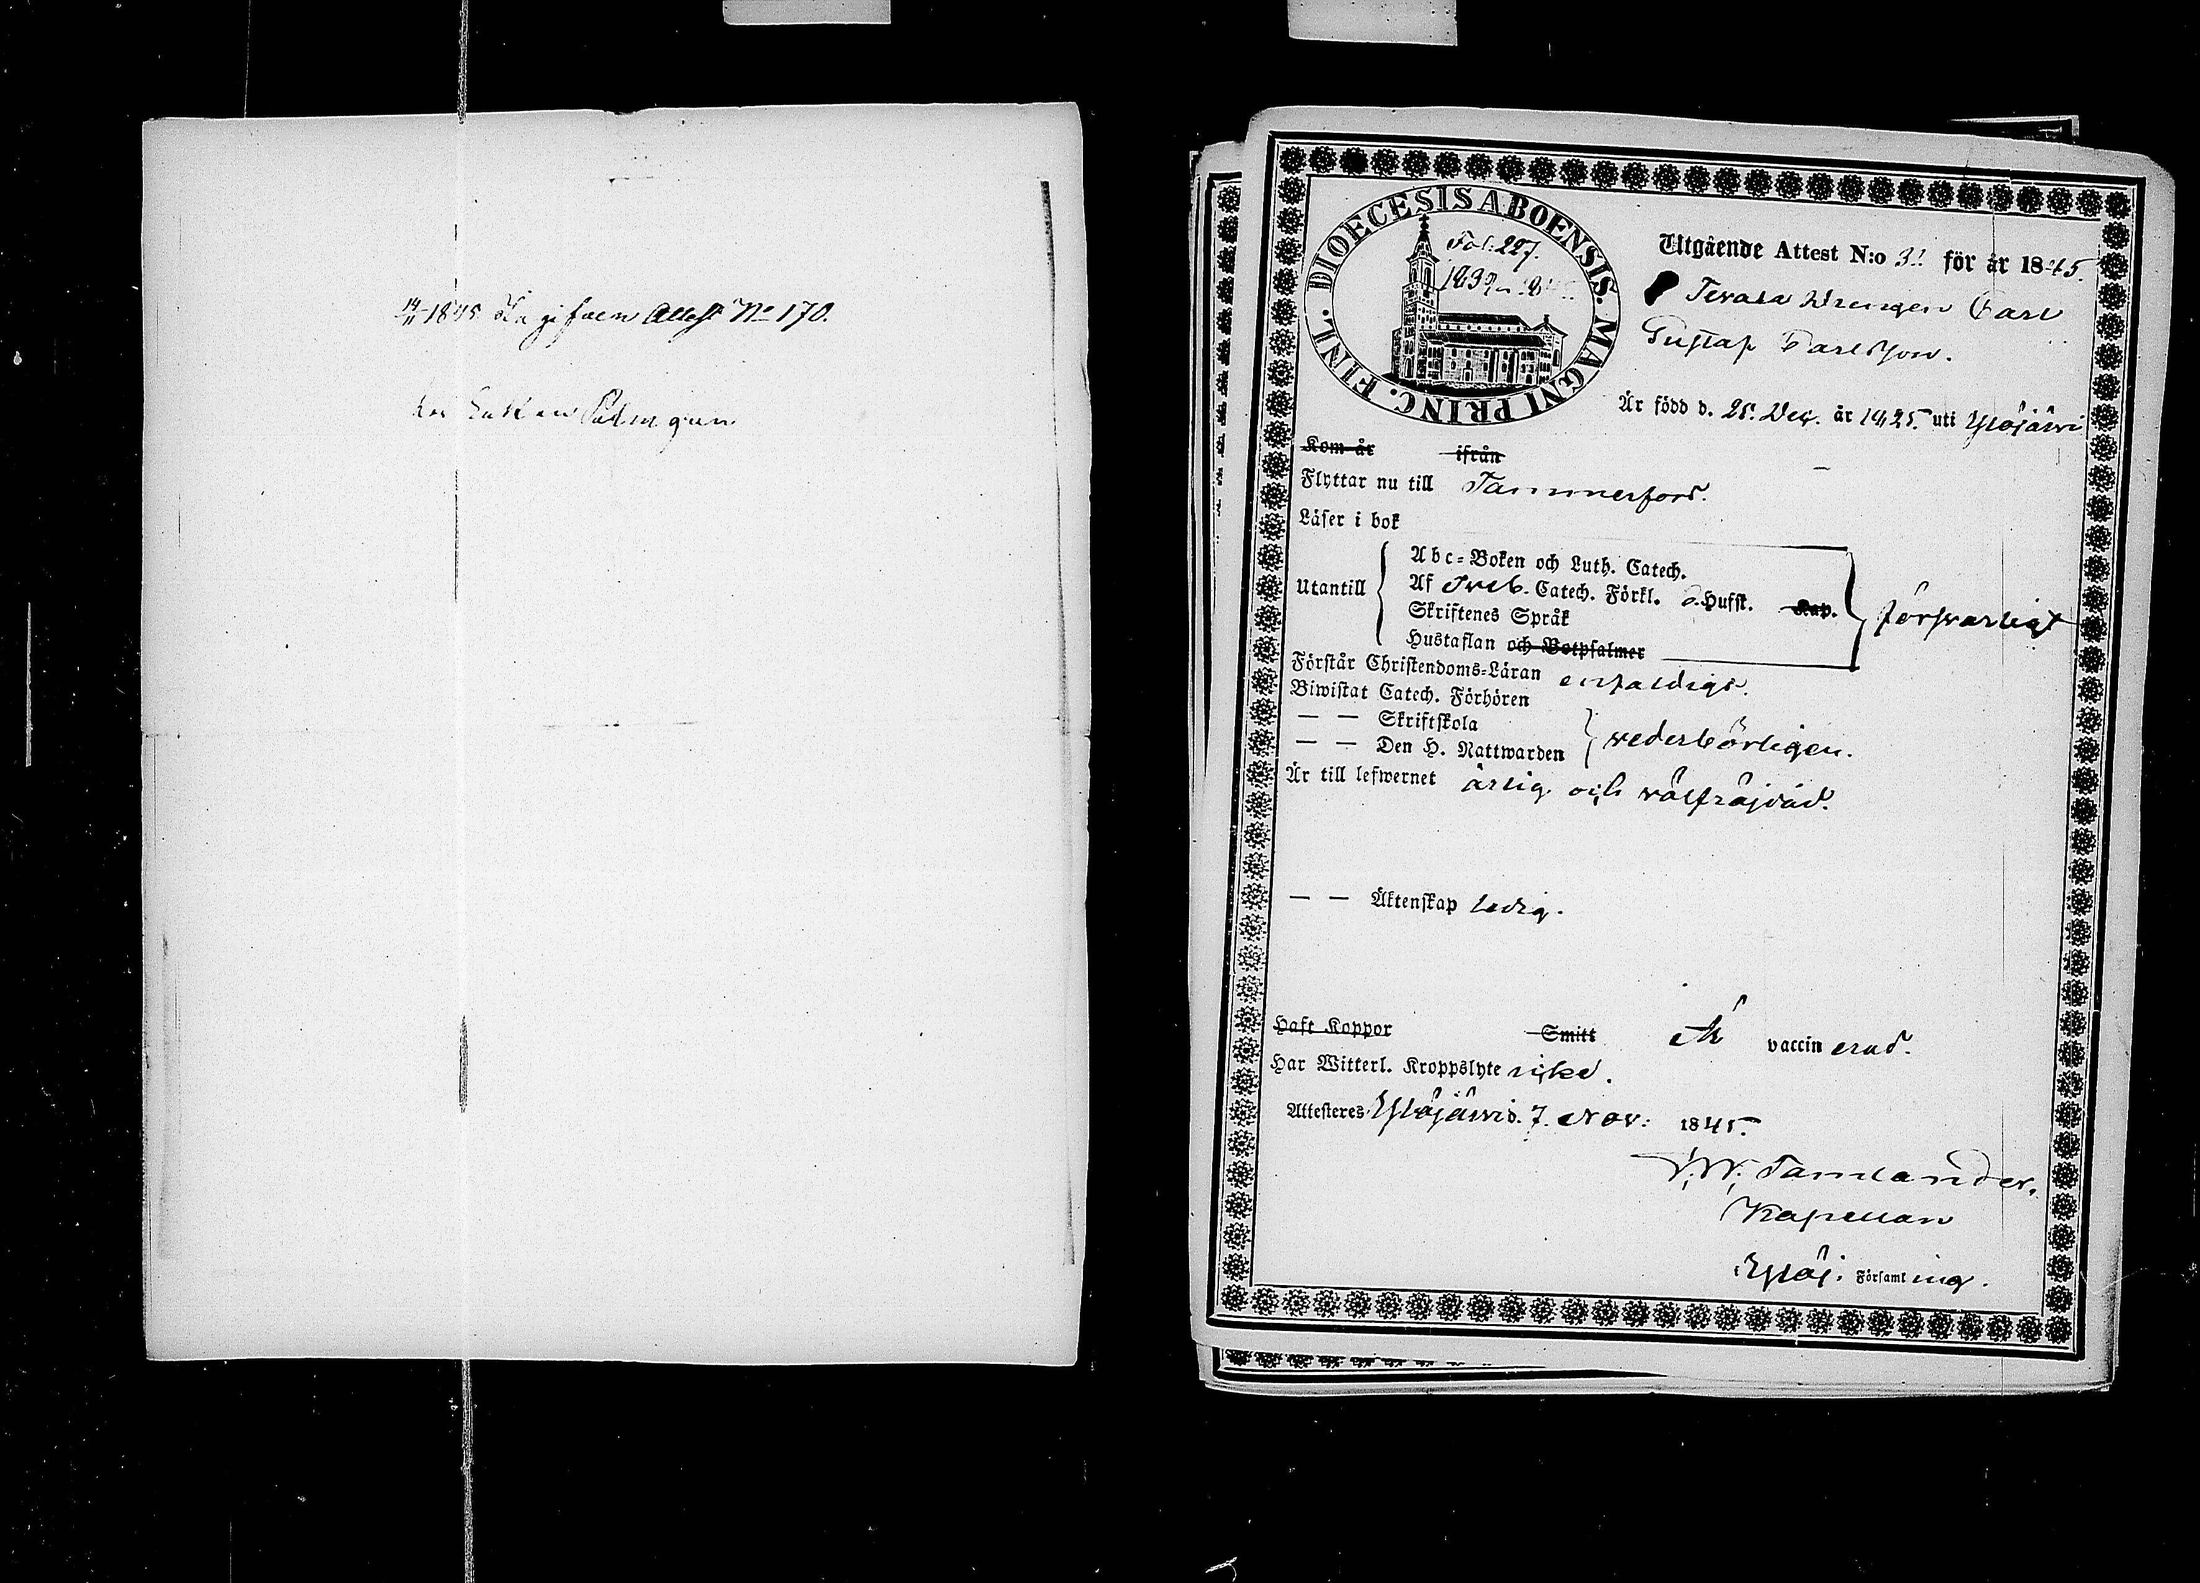 14/11 1845 Attest No 170.
DIOECESIS ABOENSIS. MAGNI PRINC. FINL.
Fol. 227.
1839
Utgående Attest N:o 31 för år 1845.
Drengen Carl
Gustaf Carlsson.
Är född d. 28. Dec. år 1825. uti Ylöjärvi
Kom år ifrån
Flyttar nu till Tammerfors.
Läser i bok
Utantill
Abc-Boken och Luth. Catech.
Af Sveb. Catech. Förkl. Hufst. Kap.
Skriftenes Språk
Hustaflan och Botpsalmer
försvarligt
Förstår Christendoms-Läran enfaldigt.
Biwistat Catech. Förhören
— — Skriftskola
— — Den H. Nattwarden
vederbörligen.
Är till lefwernet ärlig och välfräjdad.
— — Äktenskap ledig.
Haft Koppor Smitt Är vaccinerad.
Har Witterl. Kroppslyte icke.
Attesteres Ylöjärvi d. 7. Nov: 1845.
Tamlander.
Kapellan
Ylöj. Församling.